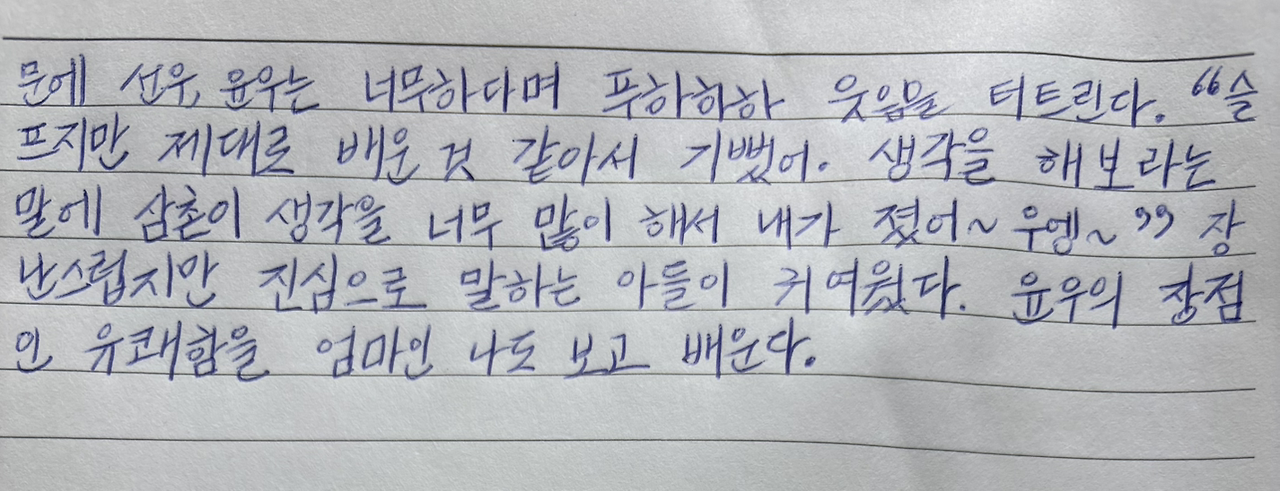 문에 선우, 윤우는 너무하다며 푸하하하 웃음을 터트린다. “슬
프지만 제대로 배운 것 같아서 기뻤어. 생각을 해보라는
말에 삼촌이 생각을 너무 많이 해서 내가 졌어~ 우엥~” 장
난스럽지만 진심으로 말하는 아들이 귀여웠다. 윤우의 장점
인 유쾌함을 엄마인 나도 보고 배운다.